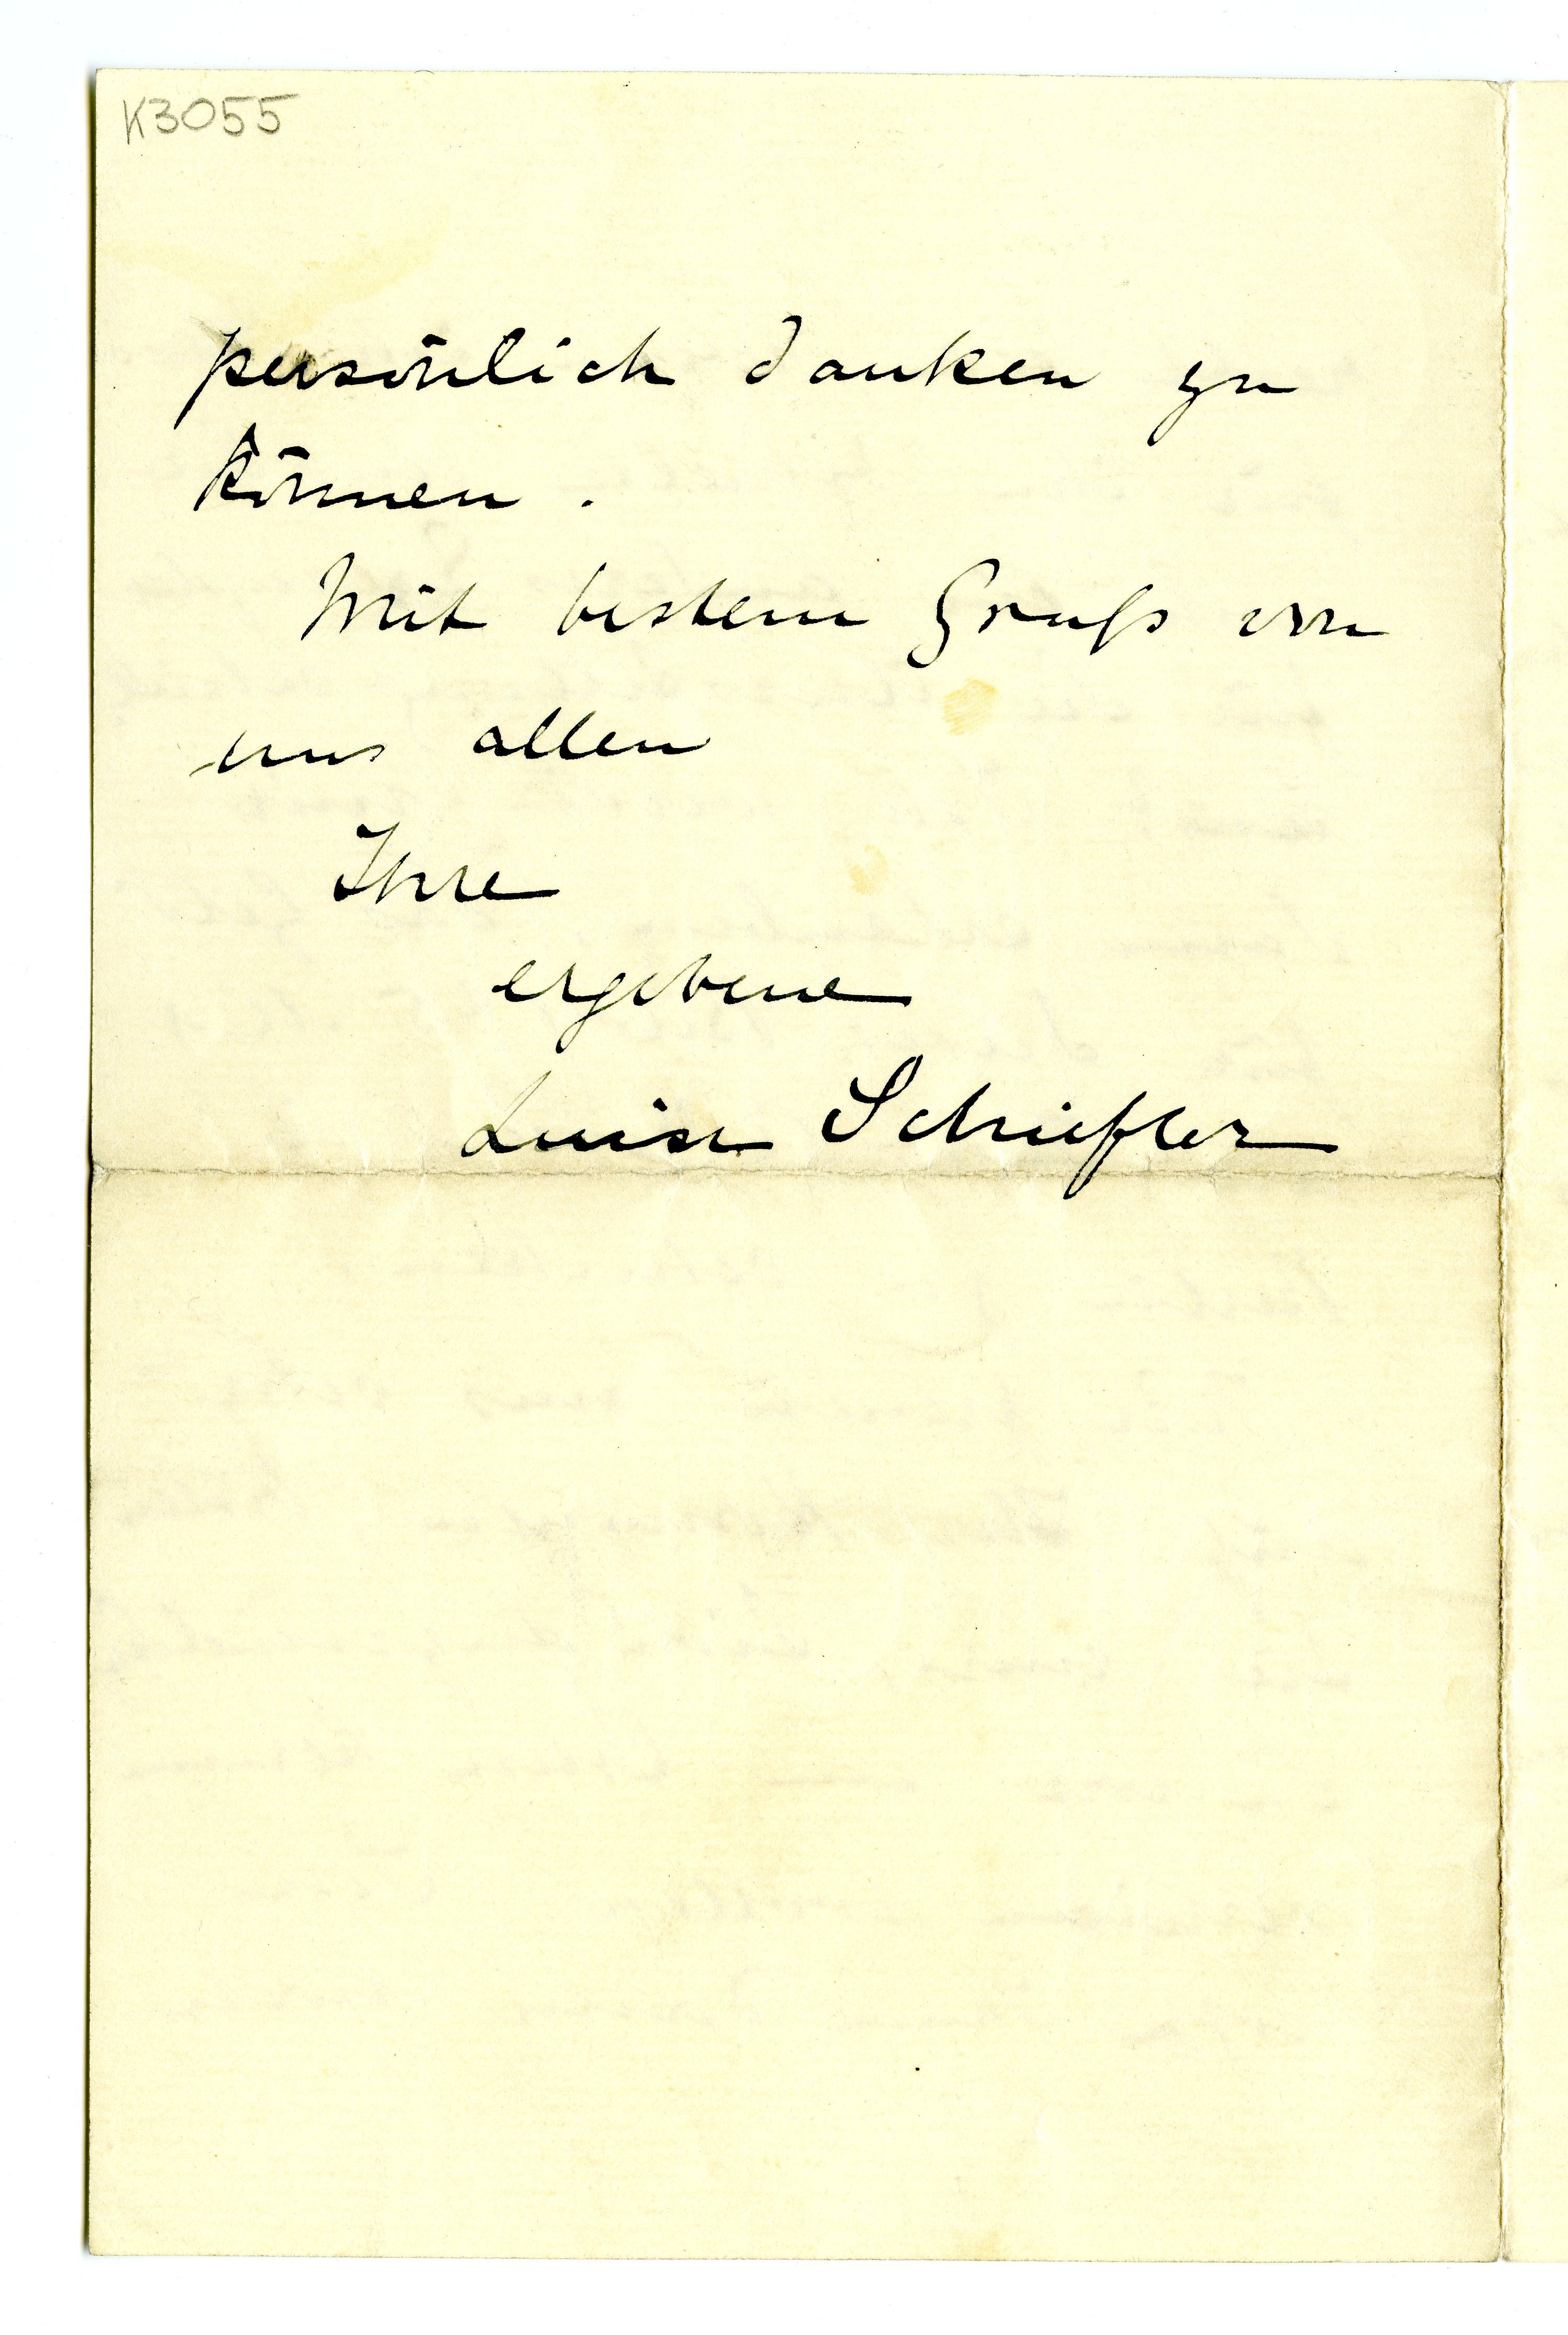 K3055
persönlich danken zu
können.
Mit bestem Gruß von
uns allen
Ihre
ergebene
Luise Schiefler